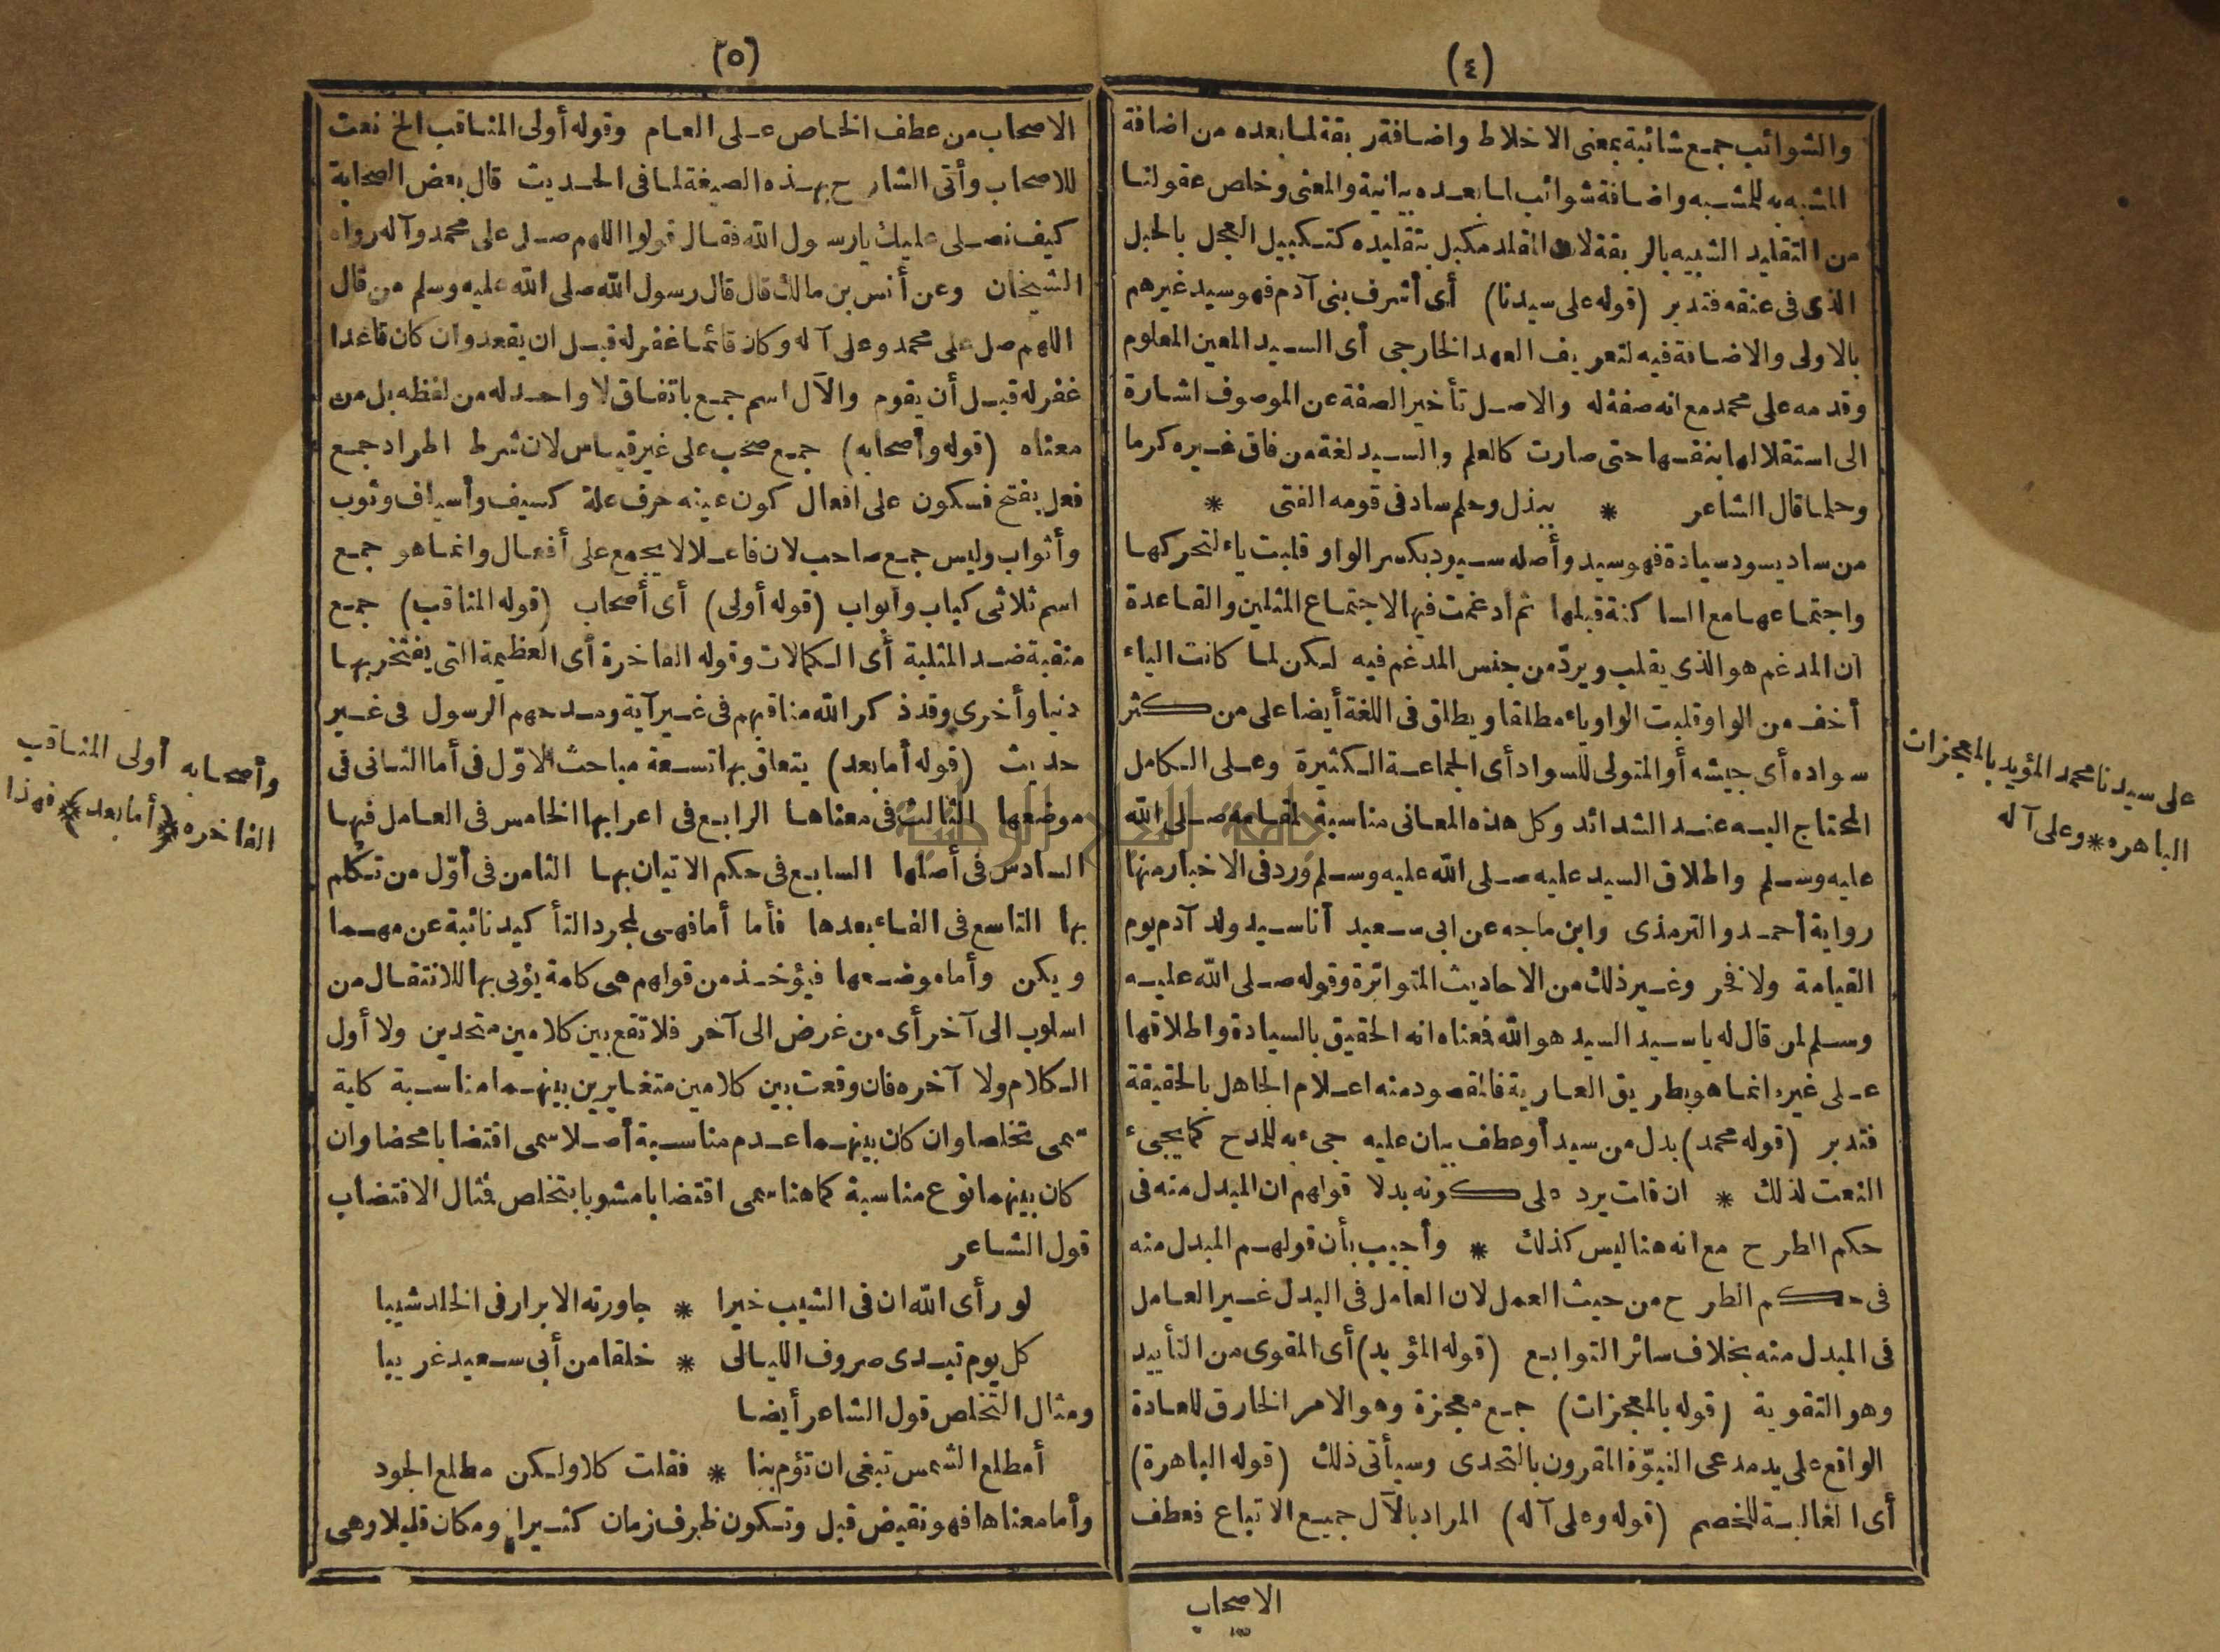 (٤)
والشوائب جمع شائبة بمعنى الاخلاط واضافة ربقة لما بعده من اضافة
المشبه به للمشبه واضافة شوائب لما بعده بيانية والمعنى وخلص عقولنا
من التقليد الشبيه بالربقة لان المقلد مكبل بتقليده كتكبيل العجل بالحبل
الذى فى عنقه فتدبر (قوله على سيدنا) أى أشرف بنى آدم فهو سيد غيرهم
بالاولى والاضافة فيه لتعريف العهد الخارجى أى السيد المعين المعلوم
وقدمه على محمد مع انه صفة له والاصل تأخير الصفة عن الموصوف اشارة
الى استقلالها بنفسها حتى صارت كالعلم والسيد لغة من فاق غيره كرما
وحلما قال الشاعر * ببذل وحلم ساد فى قومه الفتى *
من ساد يسود سيادة فهو سيد وأصله سيود بكسر الواو قلبت ياء لتحركها
واجتماعها مع الساكنة قبلها ثم أدغمت فيها لاجتماع المثلين والقاعدة
ان المدغم هو الذى يقلب ويردّ من جنس المدغم فيه لكن لما كانت الياء
أخف من الواو قلبت الواو ياء مطلقا ويطلق فى اللغة أيضا على من كثر
سواده أى جيشه أو المتولى للسواد أى الجماعة الكثيرة وعلى الكامل
المحتاج اليه عند الشدائد وكل هذه المعانى مناسبة لمقامه صلى الله
عليه وسلم واطلاق السيد عليه صلى الله عليه وسلم ورد فى الاخبار منها
رواية أحمد والترمذى وابن ماجه عن ابى سعيد أنا سيد ولد آدم يوم
القيامة ولا فخر وغير ذلك من الاحاديث المتواترة وقوله صلى الله عليه
وسلم لمن قال له يا سيد السيد هو الله فمعناه انه الحقيق بالسيادة واطلاقها
على غيره انما هو بطريق العارية فالمقصود منه اعلام الجاهل بالحقيقة
فتدبر (قوله محمد) بدل من سيد أو عطف بيان عليه جىء به للمدح كما يجىء
النعت لذلك * ان قلت يرد على كونه بدلا قولهم ان المبدل منه فى
حكم الطرح مع انه هنا ليس كذلك * وأجيب بأن قولهم المبدل منه
فى حكم الطرح من حيث العمل لان العامل فى البدل غير العامل
فى المبدل منه بخلاف سائر التوابع (قوله المؤيد) أى المقوى من التأييد
وهو التقوية (قوله بالمعجزات) جمع معجزة وهو الامر الخارق للعادة
الواقع على يد مدعى النبوّة المقرون بالتحدى وسيأتى ذلك (قوله الباهرة)
أى الغالبة للخصم (قوله وعلى آله) المراد بالآل جميع الاتباع فعطف
الاصحاب
على سيدنا محمد المؤيد بالمعجزات
الباهره * وعلى آله
(٥)
الاصحاب من عطف الخاص على العام وقوله أولى المناقب الخ نعت
للاصحاب وأتى الشارح بهذه الصيغة لما فى الحديث قال بعض الصحابة
كيف نصلى عليك يا رسول الله فقال قولوا اللهم صل على محمد وآله رواه
الشيخان وعن أنس بن مالك قال قال رسول الله صلى الله عليه وسلم من قال
اللهم صل على محمد وعلى آله وكان قائما غفر له قبل ان يقعد وان كان قاعدا
غفر له قبل أن يقوم والآل اسم جمع باتفاق لا واحد له من لفظه بل من
معناه (قوله وأصحابه) جمع صحب على غير قياس لان شرط اطراد جمع
فعل بفتح فسكون على افعال كون عينه حرف علة كسيف وأسياف وثوب
وأثواب وليس جمع صاحب لان فاعلا لا يجمع على أفعال وانما هو جمع
اسم ثلاثى كباب وأبواب (قوله أولى) أى أصحاب (قوله المناقب) جمع
منقبة ضد المثلبة أى الكمالات وقوله الفاخرة أى العظيمة التى يفتخر بها
دنيا وأخرى وقد ذكر الله مناقبهم فى غير آية ومدحهم الرسول فى غير
حديث (قوله أما بعد) يتعلق بها تسعة مباحث الاوّل فى أما الثانى فى
موضعها الثالث فى معناها الرابع فى اعرابها الخامس فى العامل فيها
السادس فى أصلها السابع فى حكم الاتيان بها الثامن فى أوّل من تكلم
بها التاسع فى الفاء بعدها فأما أما فهى لمجرد التأكيد نائبة عن مهما
ويكن وأما موضعها فيؤخذ من قولهم هى كلمة يؤتى بها للانتقال من
اسلوب الى آخر أى من غرض الى آخر فلا تقع بين كلامين متحدين ولا أول
الكلام ولا آخره فان وقعت بين كلامين متغايرين بينهما مناسبة كلية
سمى تخلصا وان كان بينهما عدم مناسبة أصلا سمى اقتضابا محضا وان
كان بينهما نوع مناسبة كما هنا سمى اقتضابا مشوبا بتخلص فمثال الاقتضاب
قول الشاعر
لو رأى الله ان فى الشيب خيرا * جاورته الابرار فى الخلد شيبا
كل يوم تبدى صروف الليالى * خلقا من أبى سعيد غريبا
ومثال التخلص قول الشاعر أيضا
أمطلع الشمس تبغى ان تؤم بنا * فقلت كلا ولكن مطلع الجود
وأما معناها فهو نقيض قبل وتكون ظرف زمان كثيرا ومكان قليلا وهى
وأصحابه أولى المناقب
الفاخره * (أما بعد) * فهذا
جامعة النجاح الوطنية